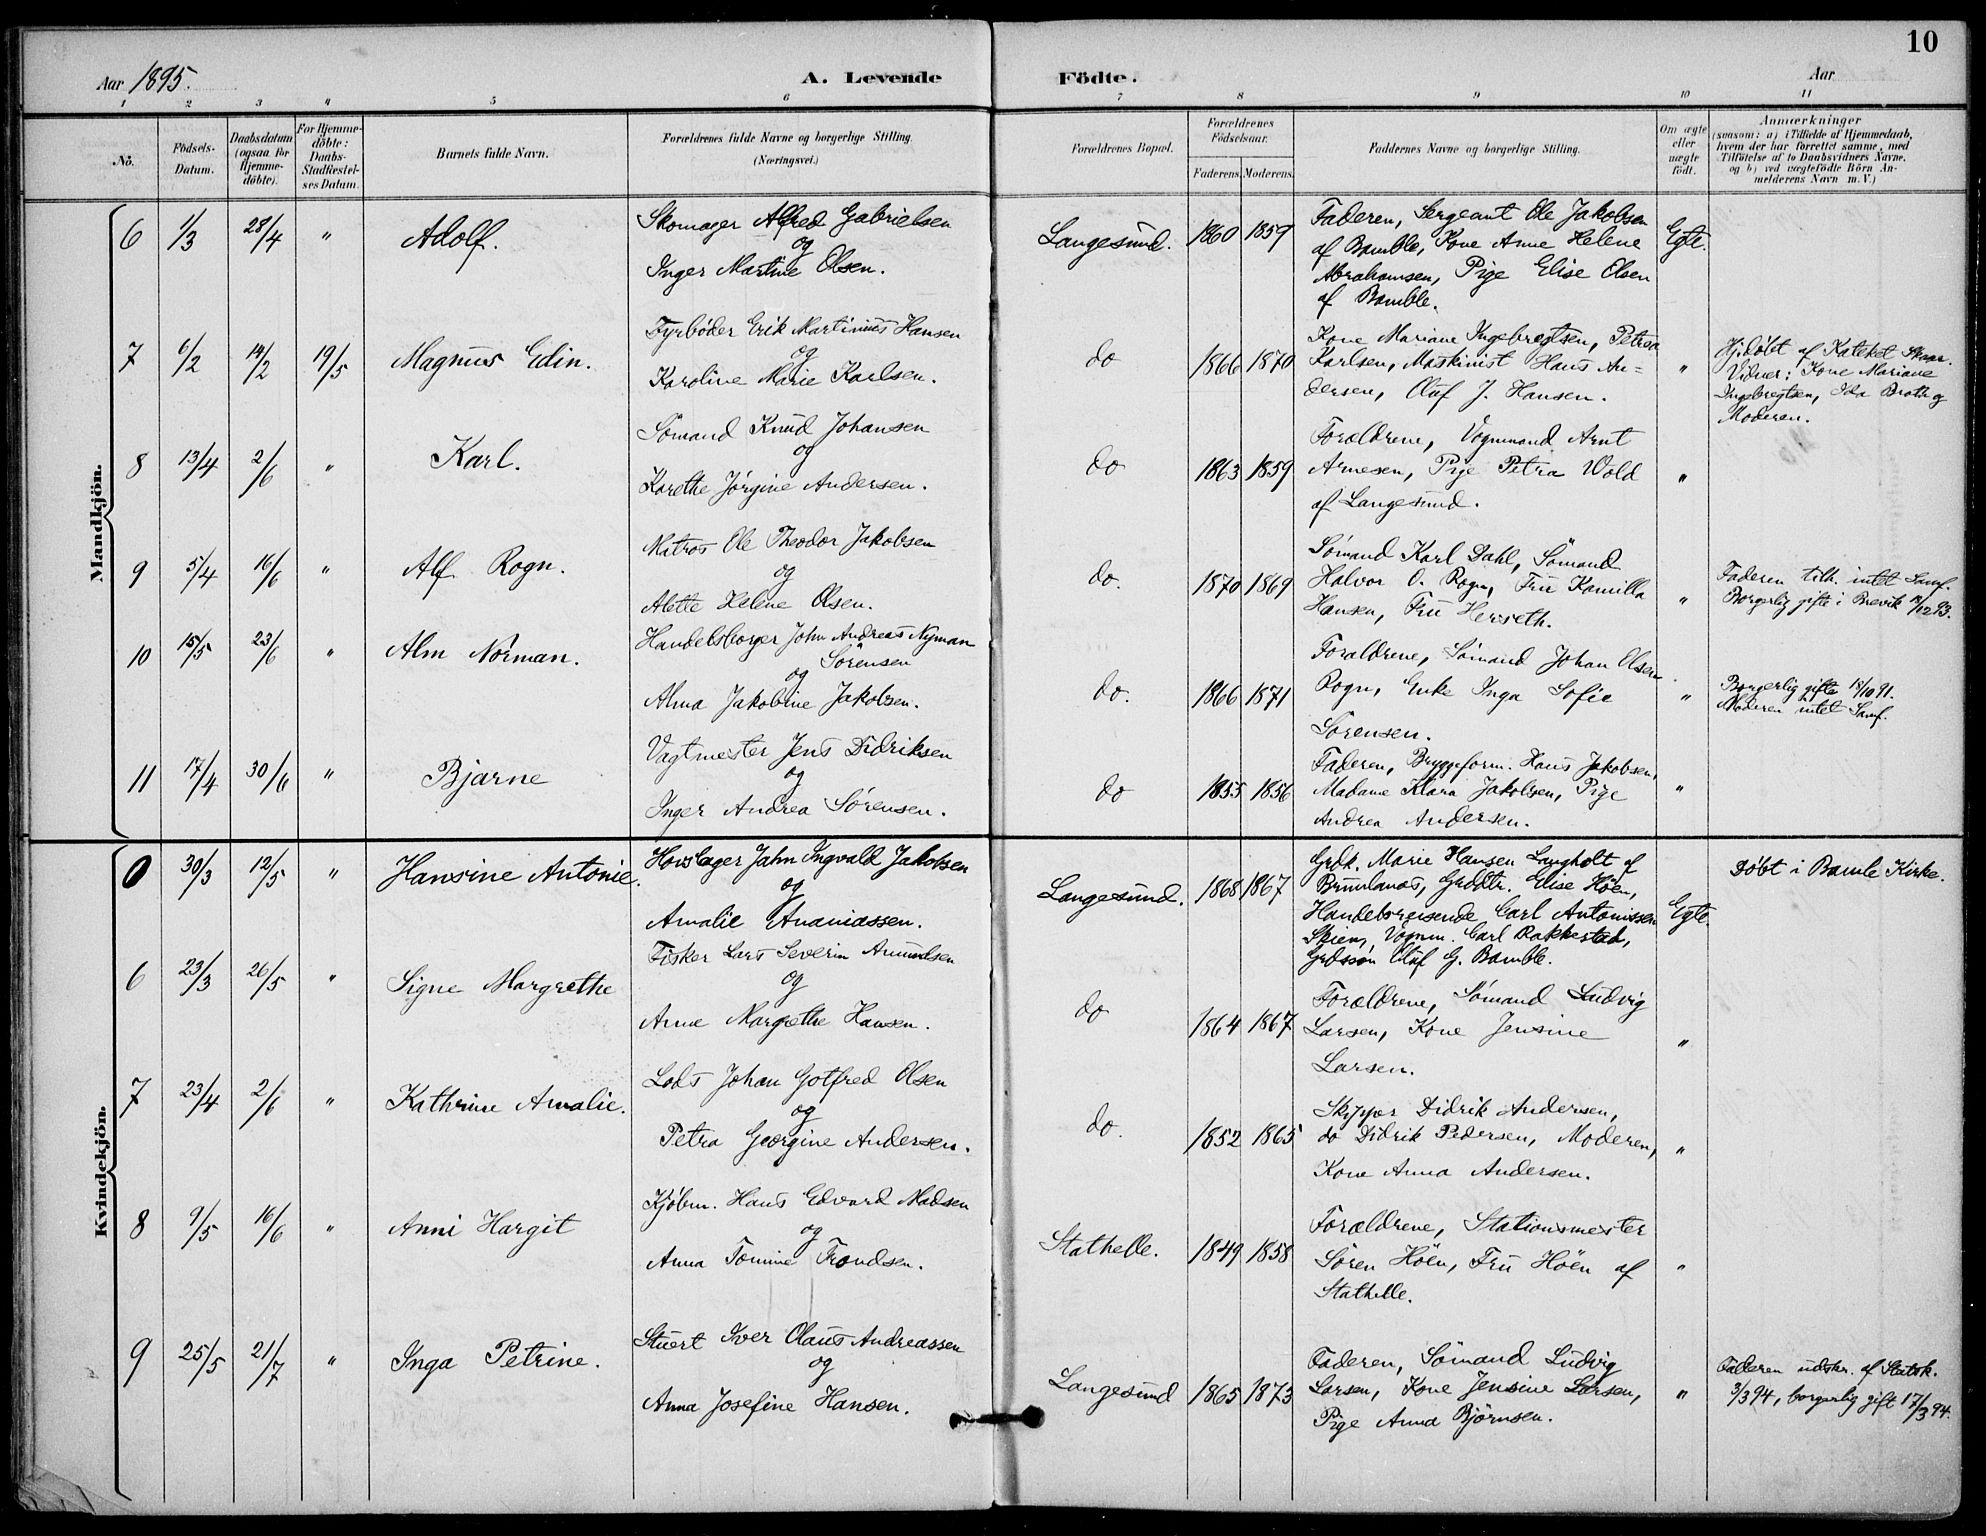 10
Aar 1895.
A. Levende Födte.
Aar
1 2 3 " 5 6 7 8 9 10 11
No.
Födsels-Datum.
Daabsdatum (ogsaa for Hjemme-döbte).
For Hjemme-döbte: Daabs-Stadfæstel-ses Datum.
Barnets fulde Navn.
Forældrenes fulde Navne og borgerlige Stilling. (Næringsvei.)
Forældrenes Bopæl.
Forældrenes Födselsaar.
Faderens. Moderens.
Faddernes Navne og borgerlige Stilling.
Om ægte eller uægte födt.
Anmærkninger
(saasom: a) i Tilfælde af Hjemmedaab,
hvem der har forrettet samme, med
Tilföielse af to Daabsvidners Navne,
og b) ved uægtefödte Börn An-
melderens Navn m. V.)
Mandkjön.
6 1/3 28/4 " Adolf.
Skomager Alfred Gabrielsen
og
Inger Martine Olsen.
Langesund. 1860 1859
Faderen, Sergeant Ole Jakobsen
af Bamble, Kone Anne Helene
Abrahamsen, Pige Elise Olsen
af Bamble.
Egte.
7 6/2 14/2 19/5 Magnus Edin.
Fyrböder Erik Martinius Hansen
og
Karoline Marie Karlsen.
do 1866 1870
Kone Mariane Ingebregtsen, Petrea
Karlsen, Maskinist Hans An=
dersen, Oluf J. Hansen.
"
Hj.döbt af Kateket Skaar.
Vidner: Kone Mariane
Ingebregtsen, Ida Broth og
Moderen.
8 13/4 2/6 " Karl.
Sömand Knud Johansen
og
Karethe Jörgine Andersen.
do 1863 1859
Forældrene, Vognmand Arnt
Arnesen, Pige Petra Wold
af Langesund.
"
9 5/4 16/6 " Alf Rogn.
Matros Ole Theodor Jakobsen
og
Alette Helene Olsen.
do. 1870 1869
Sömand Karl Dahl, Sömand
Halvor O. Rogn, Fru Kamilla
Hansen, Fru Herseth.
"
Faderen tilh. intet Samf.
Borgerlig gifte i Brevik 93.
10 15/5 23/6 " Alm Norman.
Handelsborger John Andreas Nyman
Sörensen
og
Alma Jakobine Jakobsen.
do. 1866 1871
Forældrene, Sömand Johan Olsen
Rogn, Enke Inga Sofie
Sörensen.
"
Borgerlig gifte 15/10 91.
Moderen intet Samf.
11 17/4 30/6 " Bjarne
Vagtmester Jens Didriksen
og
Inger Andrea Sörensen.
do 1855 1856
Faderen, Bryggeform. Hans Jakobsen,
Madame Klara Jakobsen, Pige
Andrea Andersen.
"
Kvindekjön.
0 30/3 12/5 " Hansine Antonie.
Hovslager Jahn Ingvald Jakobsen
og
Amalie Ananiassen.
Langesund. 1868 1867
Grdk. Marie Hansen Langholt af
Brunlanæs, Grddtr. Elise Höen,
Handelsreisende Carl Antonissen
Skien, Vognm. Carl Rakkestad,
Grdssön Oluf G. Bamble.
Egte.
Döbt i Bamle Kirke.
6 23/3 26/5 " Signe Margrethe
Fisker Lars Severin Amundsen
og
Anne Margrethe Hansen.
do 1864 1867
Forældrene, Sömand Ludvig
Larsen, Kone Jensine
Larsen.
"
7 23/4 2/6 " Kathrine Amalie.
Lods Johan Gotfred Olsen
og
Petra Georgine Andersen.
do. 1852 1865
Skipper Didrik Andersen,
do Didrik Pedersen, Moderen,
Kone Anna Andersen.
"
8 9/5 16/6 " Anni Hargit
Kjöbm. Hans Edvard Madsen
og
Anna Tomine Frandsen.
Stathelle. 1849 1858
Forældrene, Stationsmester
Sören Höen, Fru Höen af
Stathelle.
"
9 25/5 21/7 " Inga Petrine.
Stuert Iver Olaus Andreassen
og
Anna Josefine Hansen.
Langesund 1865 1873
Faderen, Sömand Ludvig
Larsen, Kone Jensine Larsen,
Pige Anna Björnsen.
"
Faderen udskr. af Statsk.
3/3 94, borgerlig gift 17/3 94.